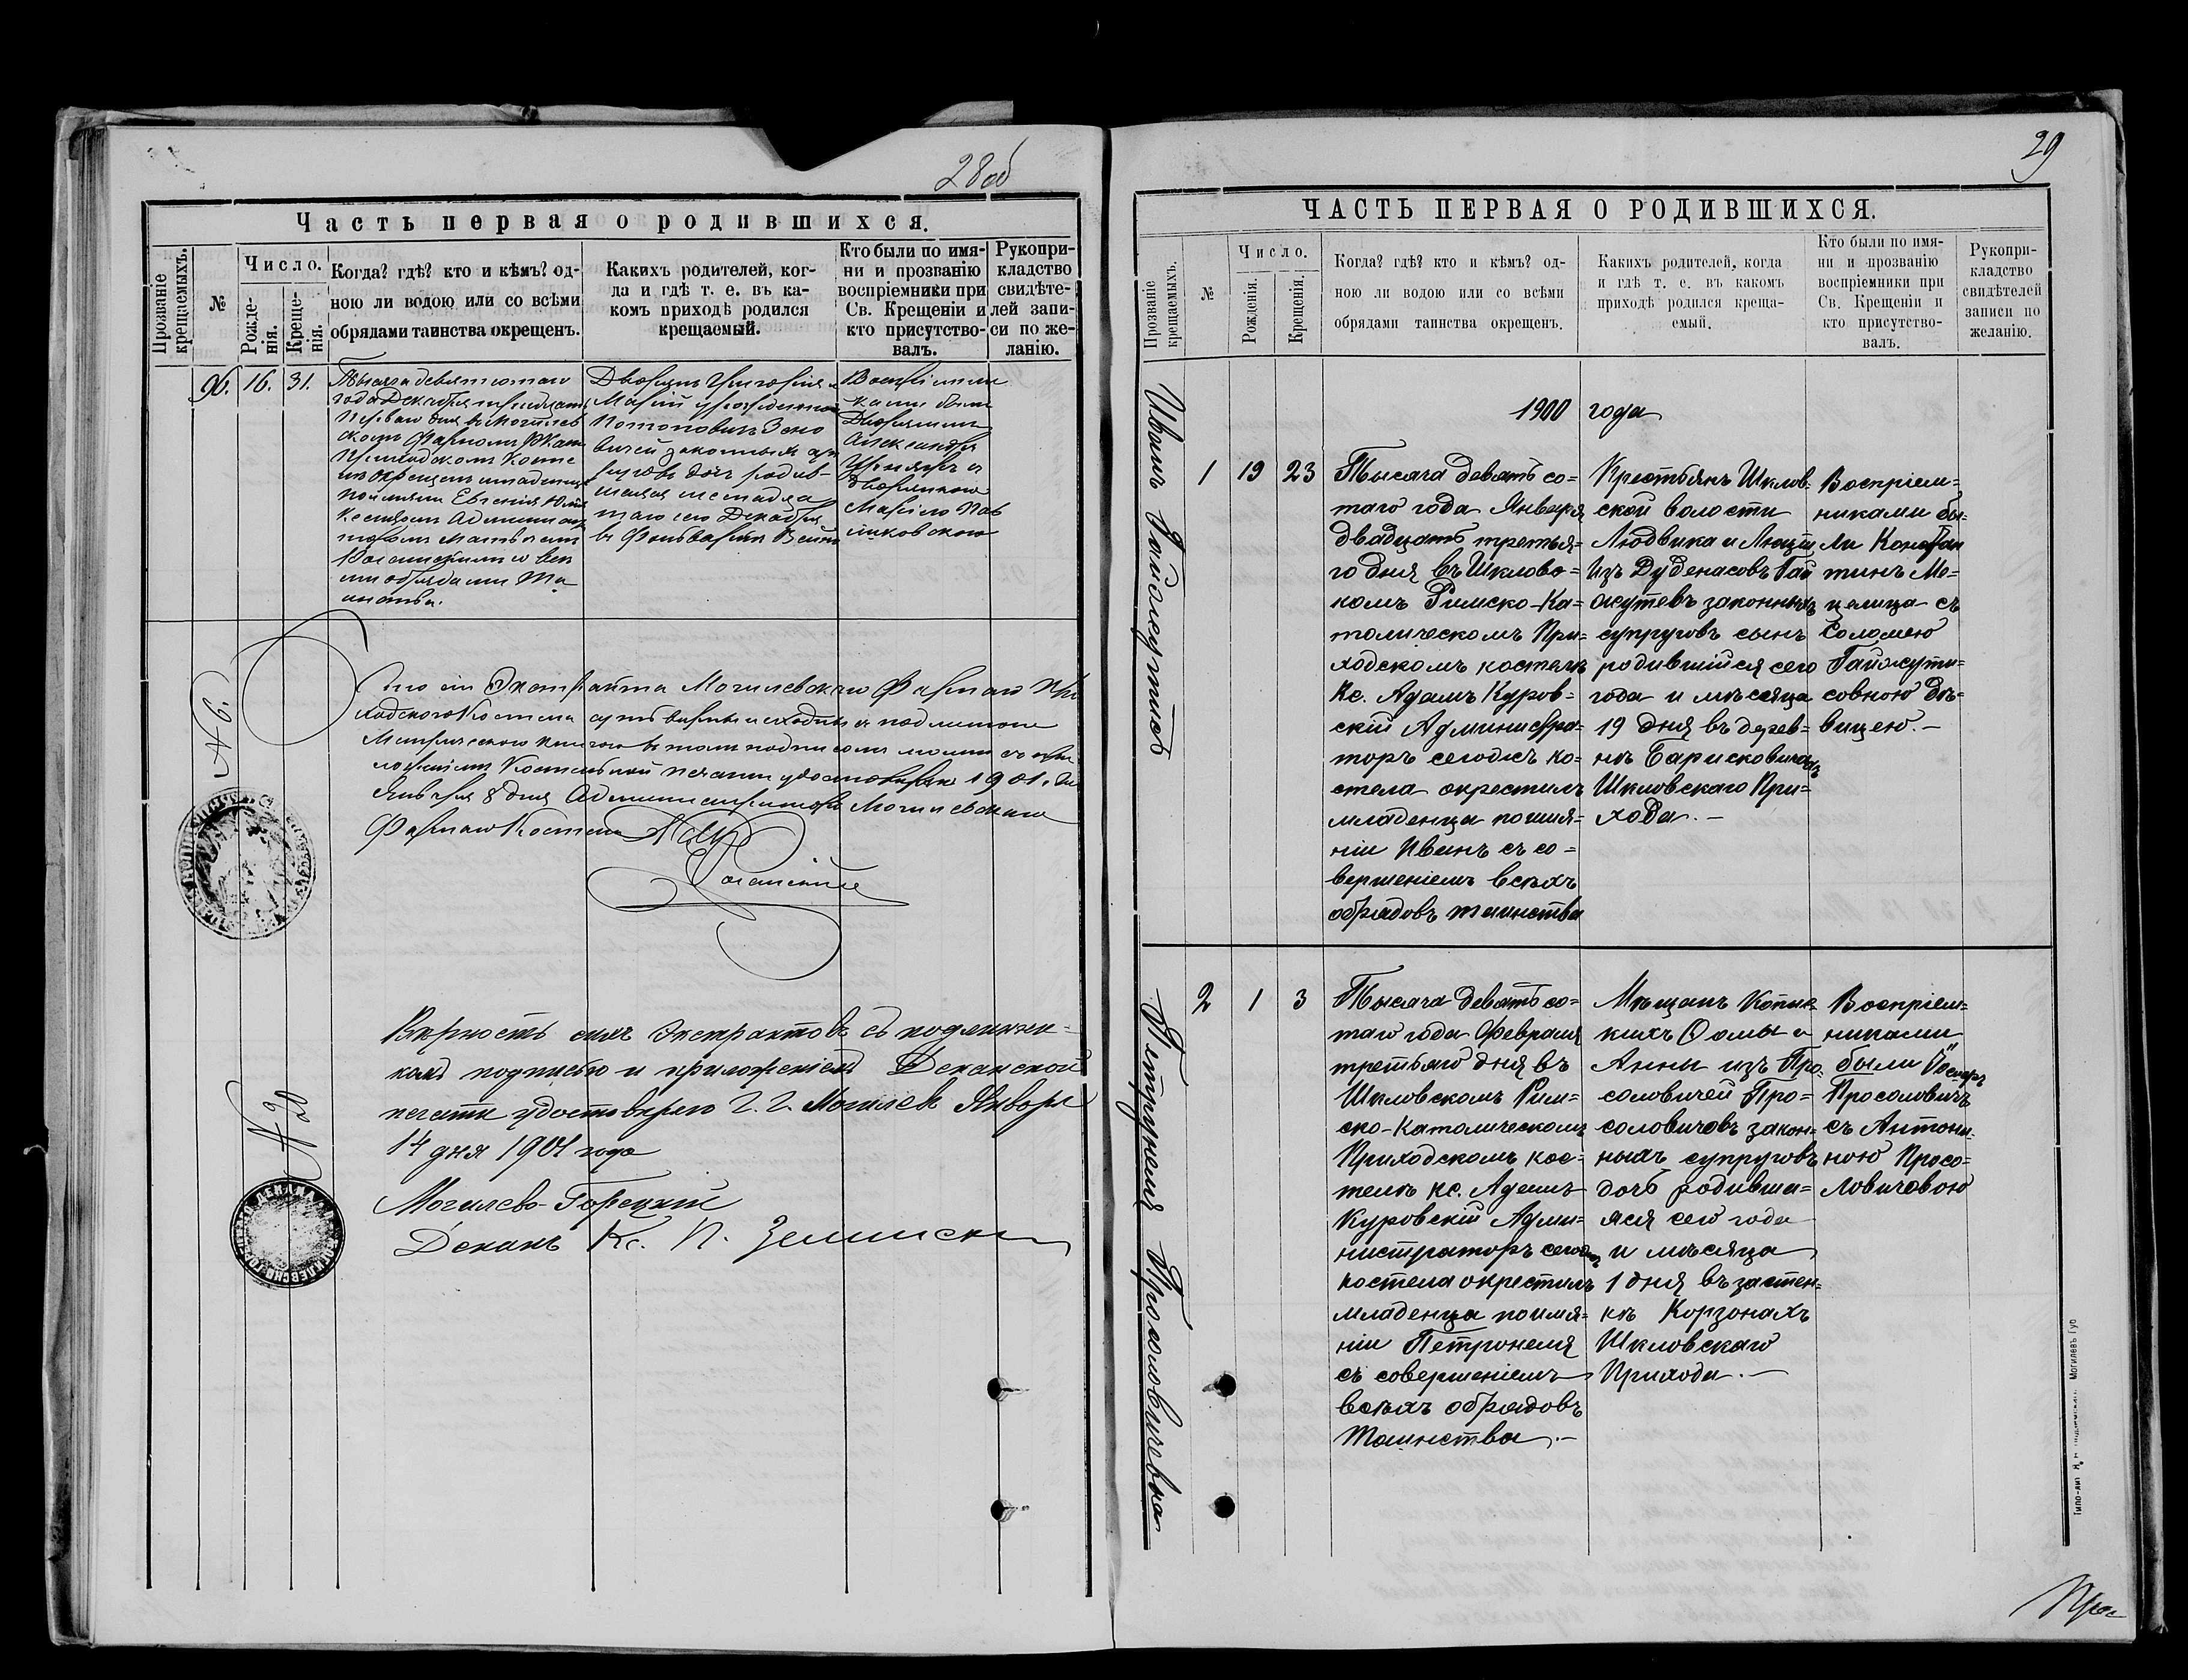 28 об
Часть первая о родившихся.
Прозваніе крещаемыхъ.
№
Число.
Рожде-
нія.
Креще-
нія.
Когда? гдѣ? кто и кѣмъ? од-
ною ли водою или со всѣми
обрядами таинства окрещенъ.
Какихъ родителей, ког-
да и гдѣ т. е. въ ка-
комъ приходѣ родился
крещаемый.
Кто были по имя-
ни и прозванію
воспріемники при
Св. Крещеніи и
кто присутство-
валъ.
Рукопри-
кладство
свидѣте-
лей запи-
си по же-
ланію.
96.
16.
31.
Тысяча девятисотаго
года Декабря тридцать
перваго дня въ Могилев
скомъ Фарномъ РКат
Приходскомъ Косте
лѣ окрещенъ младенецъ
по имяни Евгенія Юлія
Ксендзомъ Админист
раторомъ
со всѣ
ми обрядами Та
инства.
Дворянъ Григорія и
Маріи урожденной
Потоповичъ Зено
вичей законныхъ суп
руговъ дочь родив-
шаяся шестнадца
таго сего Декабря
въ Фольваркѣ
Воспріемни
ками были
Дворянинъ
Александръ
и
дворянкою
Маріею Пав
ликовскою
№ 6.
Что сіи Экстракта Могилевскаго Фарнаго При
ходскаго Костела суть вѣрны и сходны съ подлинною
Метрическою книгою въ томъ подписомъ моимъ съ при
ложеніемъ Костельной печати удостовѣряю 1901. года
Января 8 дня Администраторъ Могилевскаго
Фарнаго Костела
№ 20
Вѣрность сихъ Экстрактовъ съ подлинни-
комъ подписью и приложеніемъ Деканской
печати удостовѣряю Г. Г. Могилевъ Января
14 дня 1901 года
Могилево-Горецкій
Деканъ Кс. П. Зелински
29
ЧАСТЬ ПЕРВАЯ О РОДИВШИХСЯ.
Прозваніе
крещаемыхъ.
№
Число.
Рожденія.
Крещенія.
Когда? гдѣ? кто и кѣмъ? од-
ною ли водою или со всѣми
обрядами таинства окрещенъ.
Какихъ родителей, когда
и гдѣ т. е. въ какомъ
приходѣ родился креща-
емый.
Кто были по имя-
ни и прозванію
воспріемники при
Св. Крещеніи и
кто присутство-
валъ.
Рукопри-
кладство
свидѣтелей
записи по
желанію.
1900 года
Иванъ Гайжутисъ
1
19
23
Тысяча девять со=
таго года Января
двадцать третья=
го дня въ Шкловс=
комъ Римско-Ка=
толическомъ При=
ходскомъ костелѣ
Кс. Адамъ Куров=
скій Администра=
торъ сегожъ ко=
стела окрестилъ
младенца по имя=
ніи Иванъ съ со=
вершеніемъ всѣхъ
обрядовъ таинства
Крестьянъ Шклов-
ской волости
Людвика и Люціи
Изъ Дуденасовъ Гай
жутевъ законныхъ
супруговъ сынъ
родившійся сего
года и мѣсяца
19 дня въ дерев=
нѣ Барисковичахъ
Шкловскаго При=
хода.-
Воспріем=
никами бы=
ли Констан
тинъ Ме=
целица съ
Соломею
Гайжути=
совною дѣ=
вицею.-
Петрунеля Просоловичевна
2
1
3
Тысяча девять со=
таго года Февраля
третьяго дня въ
Шкловскомъ Рим=
ско-Католическомъ
Приходскомъ кос=
телѣ кс. Адамъ
Куровскій Адми=
нистраторъ сегожъ
костела окрестилъ
младенца по имя=
ніи Петронеля
съ совершеніемъ
всѣхъ обрядовъ
Таинства.-
Мѣщанъ Копыс
кихъ Ѳомы и
Анны изъ Про-
соловичей Про=
соловичовъ закон=
ныхъ супруговъ
дочь родивша=
яся сего года
и мѣсяца
1 дня въ застен=
кѣ Корзонахъ
Шкловскаго
Прихода.-
Воспріем=
никами
были
Просоловичъ
съ Антони-
ною Просо=
ловичовою